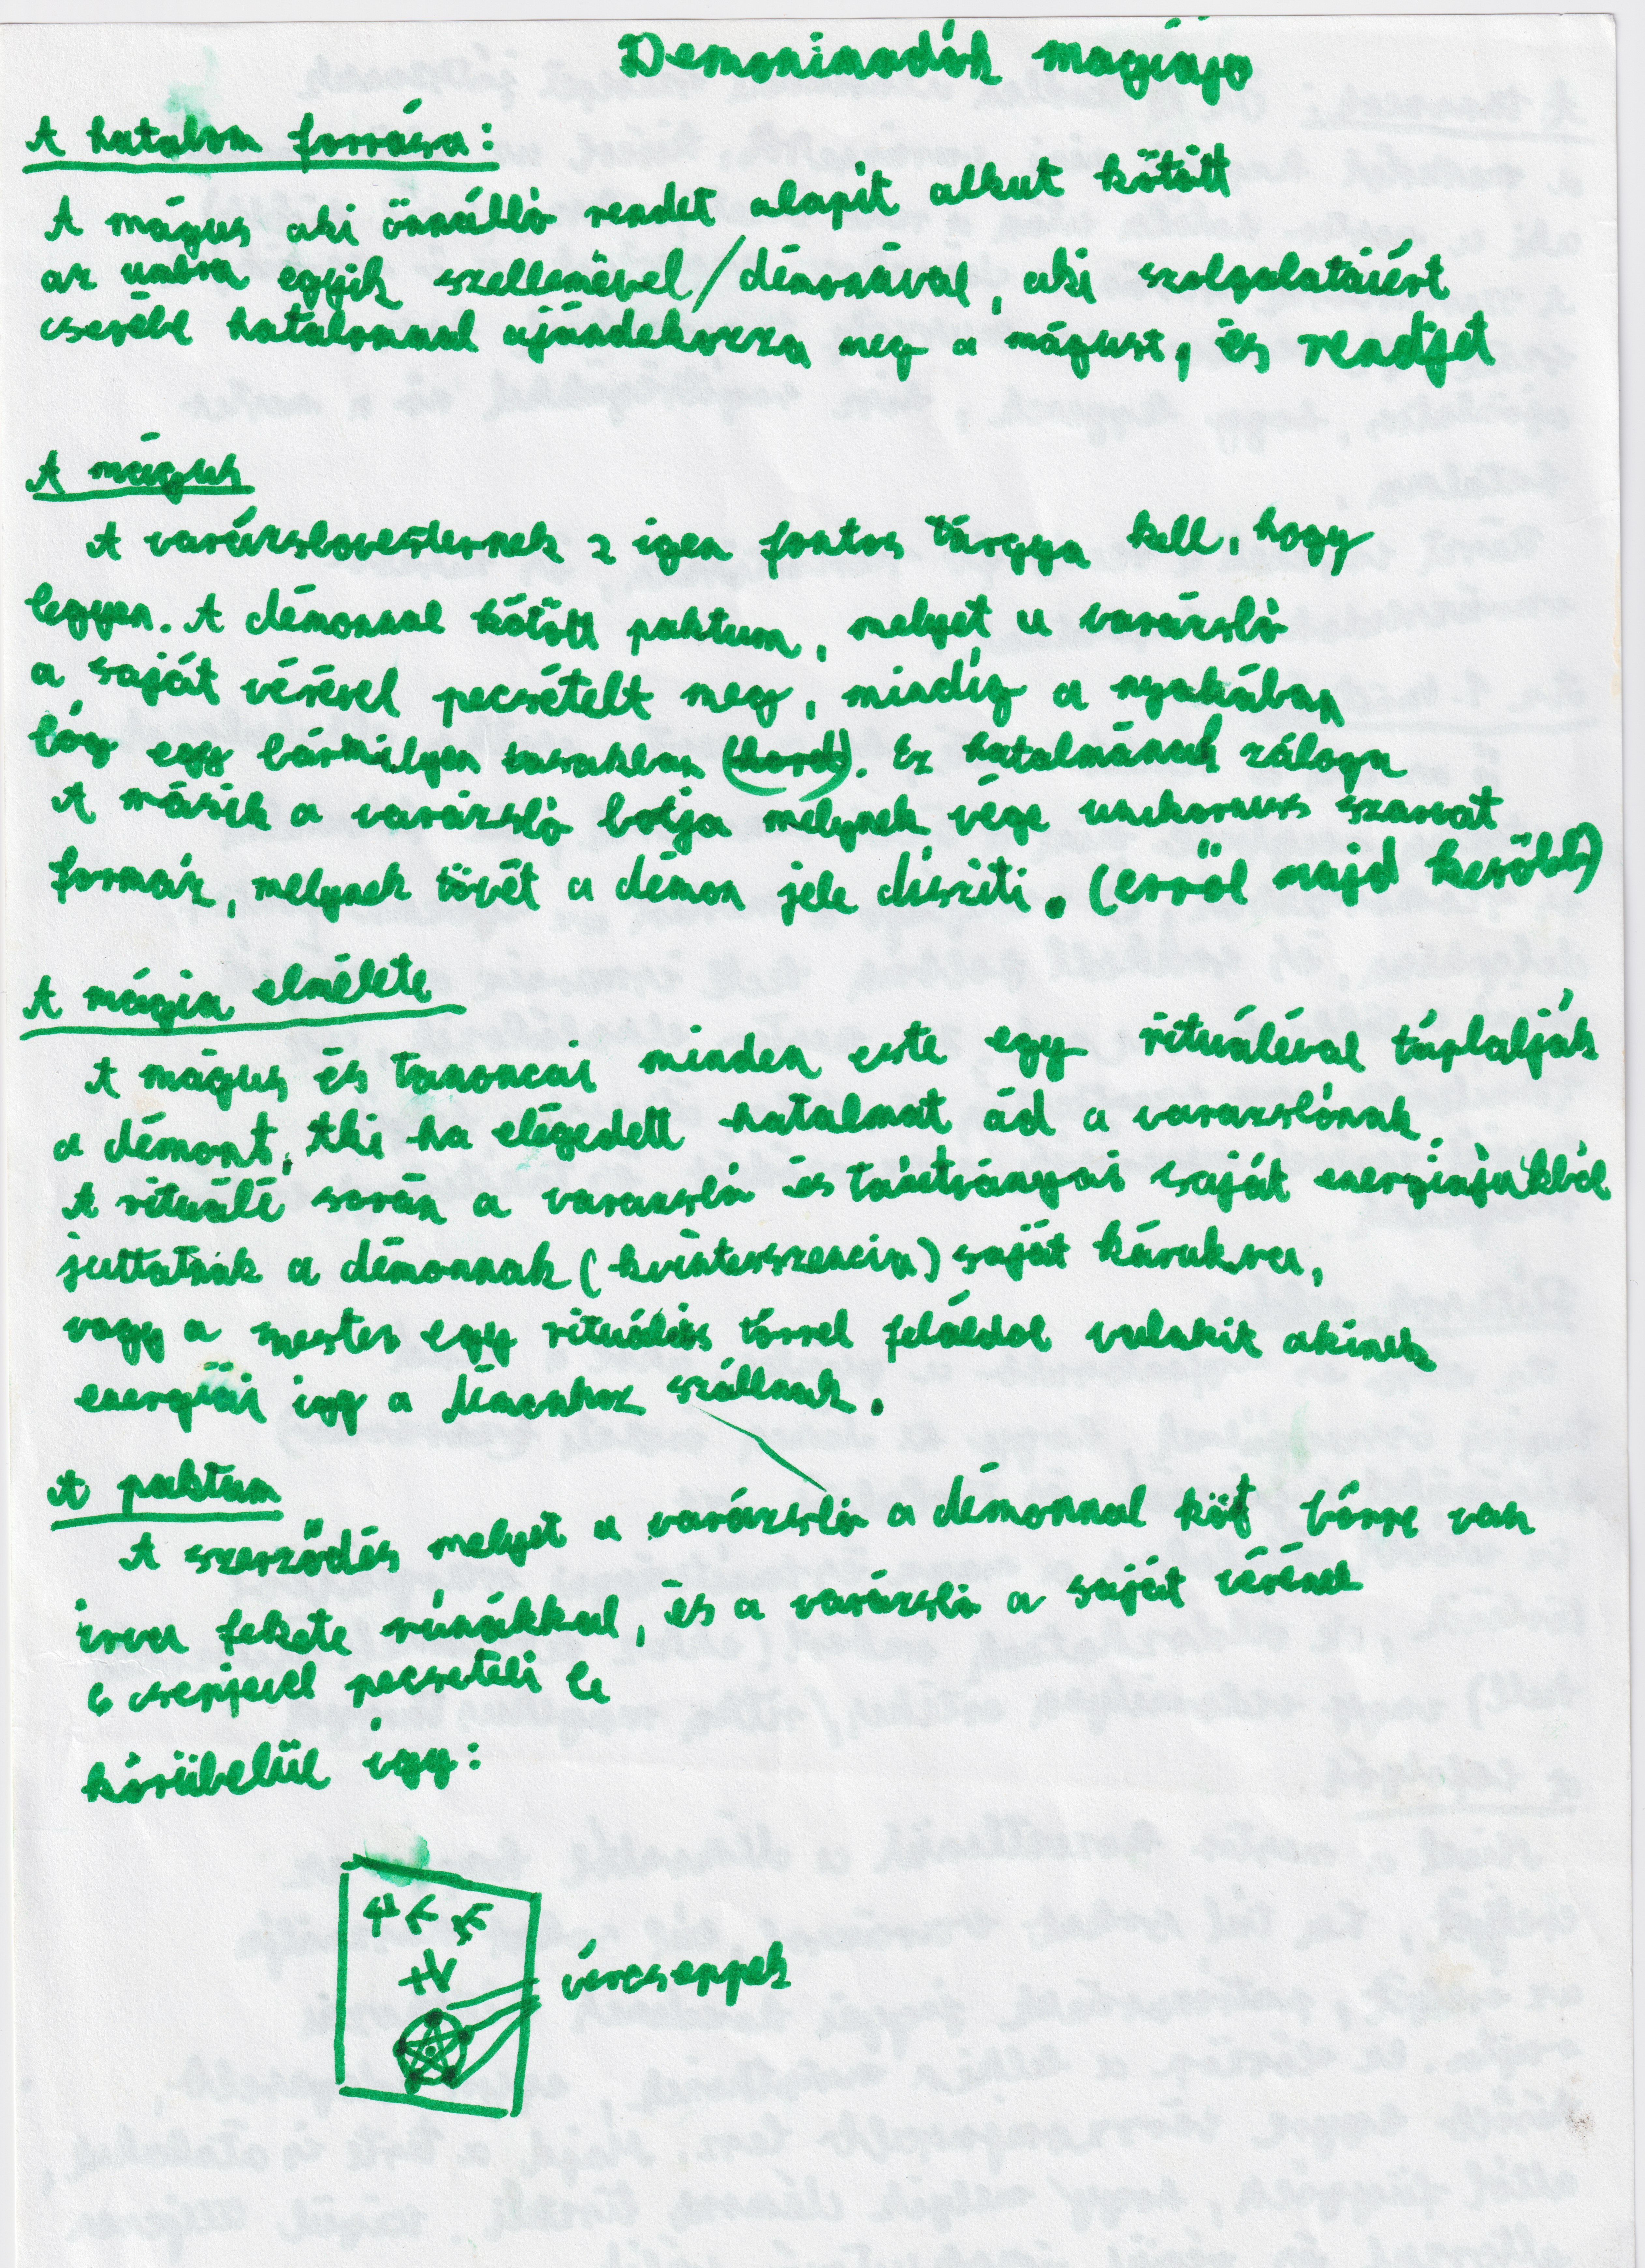 Demonimadók mágiája
A hatalom forrása:
A mágus aki önnálló rendet alapit alkut kötött
az umbra egyik szellemével/démonával, aki szolgalataiért
cserébe hatalommal ajándekozza meg a mágust, és rendjet
A mágus
A varázslomesternek 2 igen fontos tárgya kell, hogy
legyen. A démonnal kötött paktum, melyet a varázsló
a saját vérével pecsételt meg, mindíg a nyakában
lóg egy bármilyen tasakban (hord). Ez hatalmának záloga
A másik a varázsló botja melynek vége unikornis szarvat
formáz, melynek tövét a démon jele disziti. (erről majd később)
A mágia elmélete
A mágus és tanoncai minden este egy rituáléval táplalják
a démont, aki ha elégedett hatalmat ád a varazslónak.
A rituálé során a varazsló és tanitványai saját energiájukból
juttatnak a démonnak (kvinteszencia) saját kárukra,
vagy a mester egy rituális törrel feláldol valakit akinek
energiái igy a démonhoz szállnak.
A paktum
A szerződés melyet a varázsló a démonnal köt bőrre van
irva fekete rúnákkal, és a varázsló a saját vérének
6 csepjevel pecseteli le
körübelül igy:
vércseppek